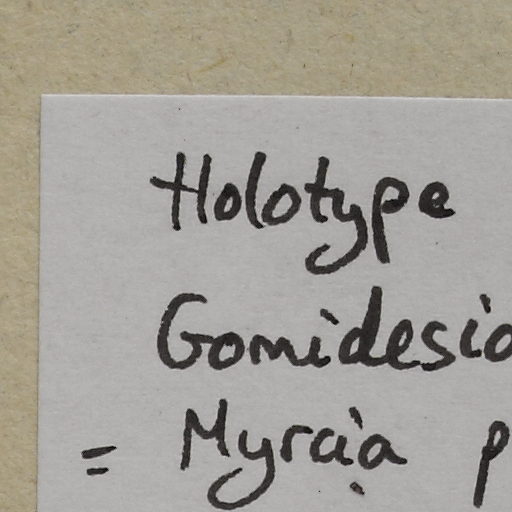 Holotype
Gomidesia
= Myrcia p